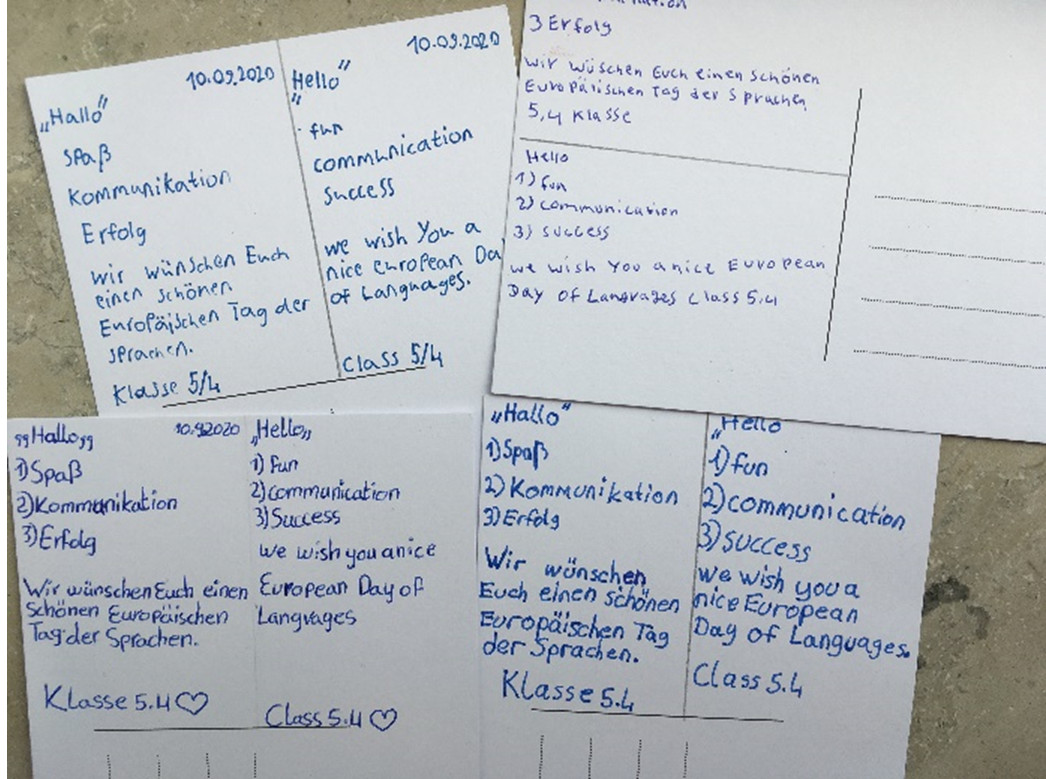 10.09.2020
„Hallo"
Spaß
Kommunikation
Erfolg
wir wünschen Euch
einen schönen
Europäischen Tag der
Sprachen.
Klasse 5/4
10.09.2020
„Hello"
fun
communication
Success
we wish You a
nice european Da
of Languages.
Class 5/4
3 Erfolg
wir wüschen Euch einen schönen
Europäischen Tag der Sprachen
5,4 Klasse
Hello
1) fun
2) communication
3) success
we wish You a nice European
Day of Languages Class 5.4
„Hallo„
10.9.2020
1) Spaß
2) Kommunikation
3) Erfolg
Wir wünschen Euch einen
schönen Europäischen
Tag der Sprachen.
Klasse 5.4 ♡
„Hello„
1) fun
2) communication
3) Success
we wish you a nice
European Day of
Languages
Class 5.4 ♡
„Hallo"
1) Spaß
2) Kommunikation
3) Erfolg
Wir wünschen
Euch einen schönen
Europäischen Tag
der Sprachen.
Klasse 5.4
„Hello
1) fun
2) communication
3) success
we wish you a
nice European
Day of Languages.
Class 5.4